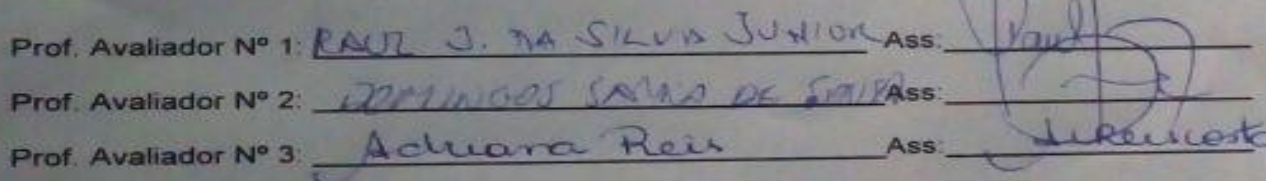 Prof. Avaliador Nº 1: RAUL J. DA SILVA JUNIOR Ass:
Prof. Avaliador Nº 2: DOMINGOS DE Ass:
Prof. Avaliador Nº 3: Adriana Reis Ass: